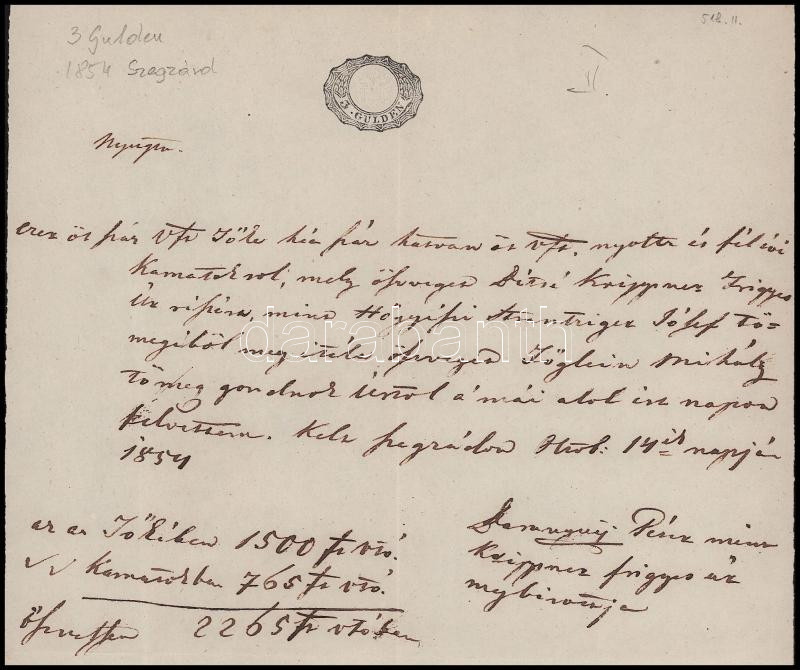 3 Gulden
1854 Szegzárd
518. II.
II
3 · GULDEN
Nyugta.
ezer öt száz Vft Tőke hét száz hatvan öt vft. nyoltz és fél évi
Kamatokrol, mely öszveget Krippner Frigyes
Úr részére, mint Hőgyészi József tö=
megéből meg ítélt öszveget Mihály
tömeg gondnok Úrtol a mái alol írt napon
felvettem. Kelt Szegzárdon 14ik napján
1854
az az Tőkében 1500 ft vtó.
Kamatokban 765 ft vtó.
öszvessen 2265 ft vtóban
Daranyay mint
Krippner frigyes úr
megbizottja
darabanth